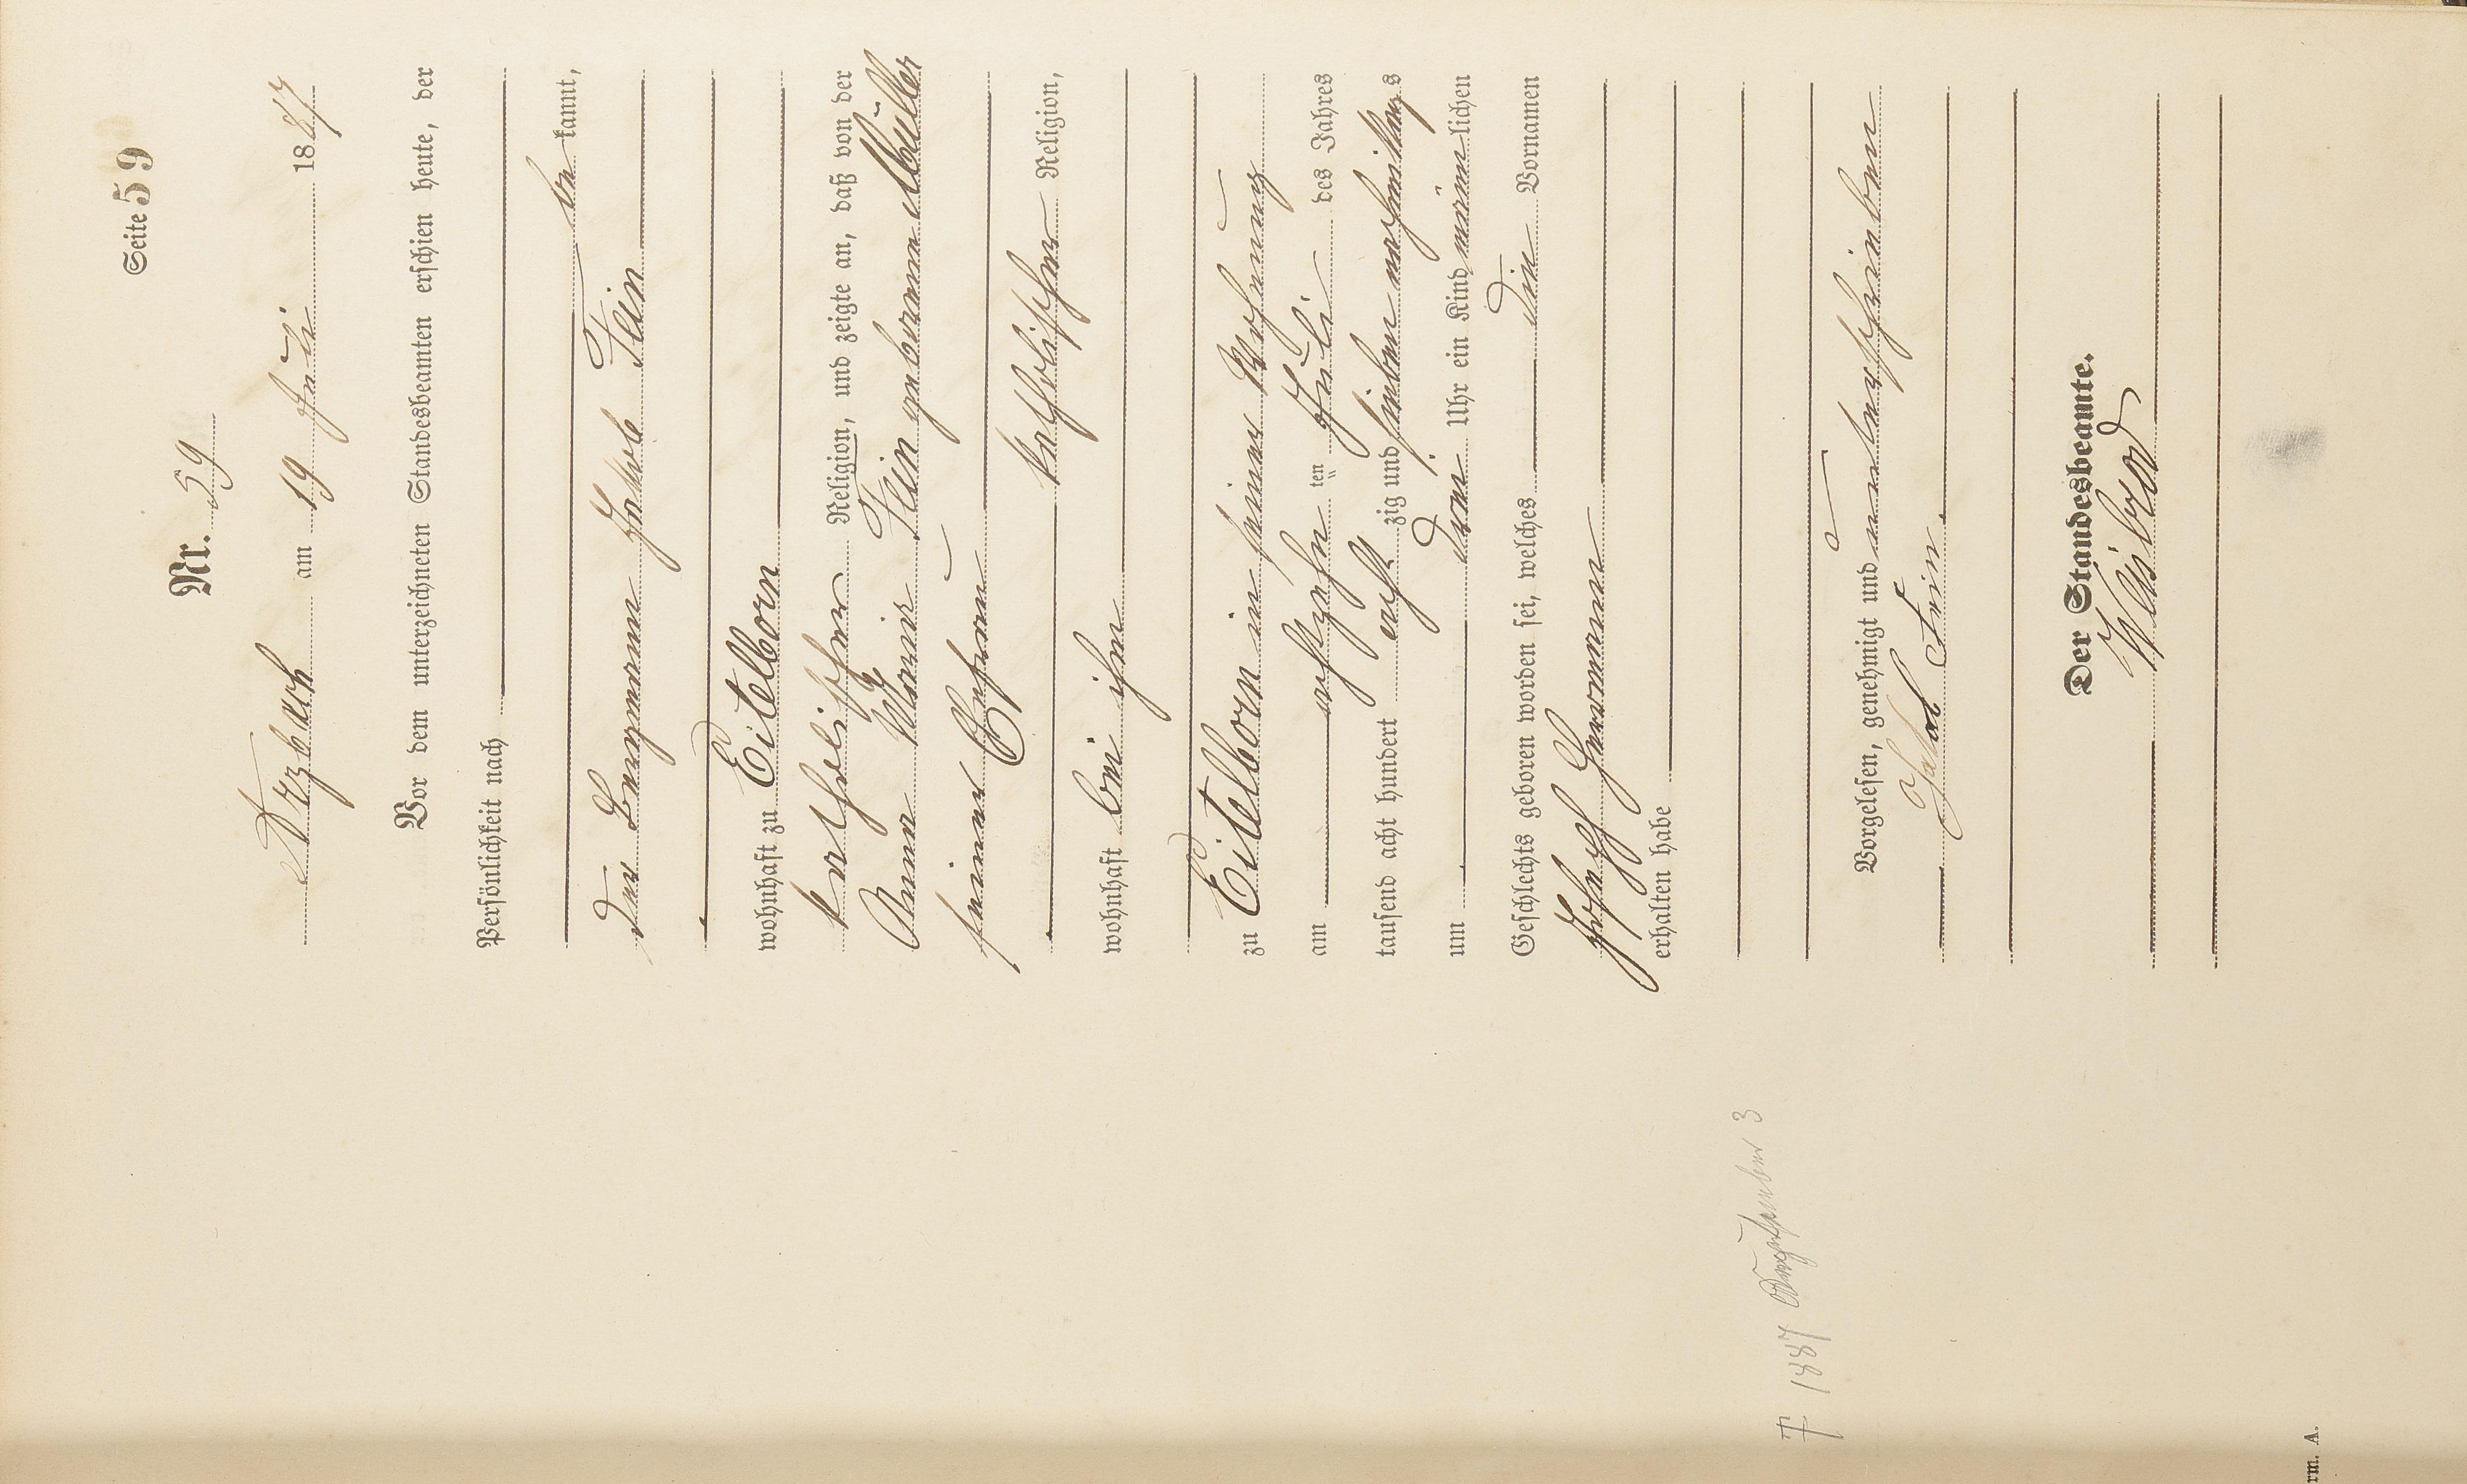 Seite 59
Nr. 59
Arzbach am 19 Juli 1887
Vor dem unterzeichneten Standesbeamten erschien heute, der
Persönlichkeit nach
be kannt,
der Bergmann Jakob Fein
wohnhaft zu Eitelborn
katholischer Religion, und zeigte an, daß von der
Anna Maria Fein geborene Müller
seiner Ehefrau
katholischer Religion,
wohnhaft bei ihm
zu Eitelborn in seiner Wohnung
am achtzehn ten Juli des Jahres
tausend acht hundert acht zig und sieben nachmittags
um drei Uhr ein Kind männ lichen
Geschlechts geboren worden sei, welches die Vornamen
Joseph Hermann
erhalten habe
Vorgelesen, genehmigt und unterschrieben
Jakob Fein
Der Standesbeamte.
† 1887 3
rm. A.